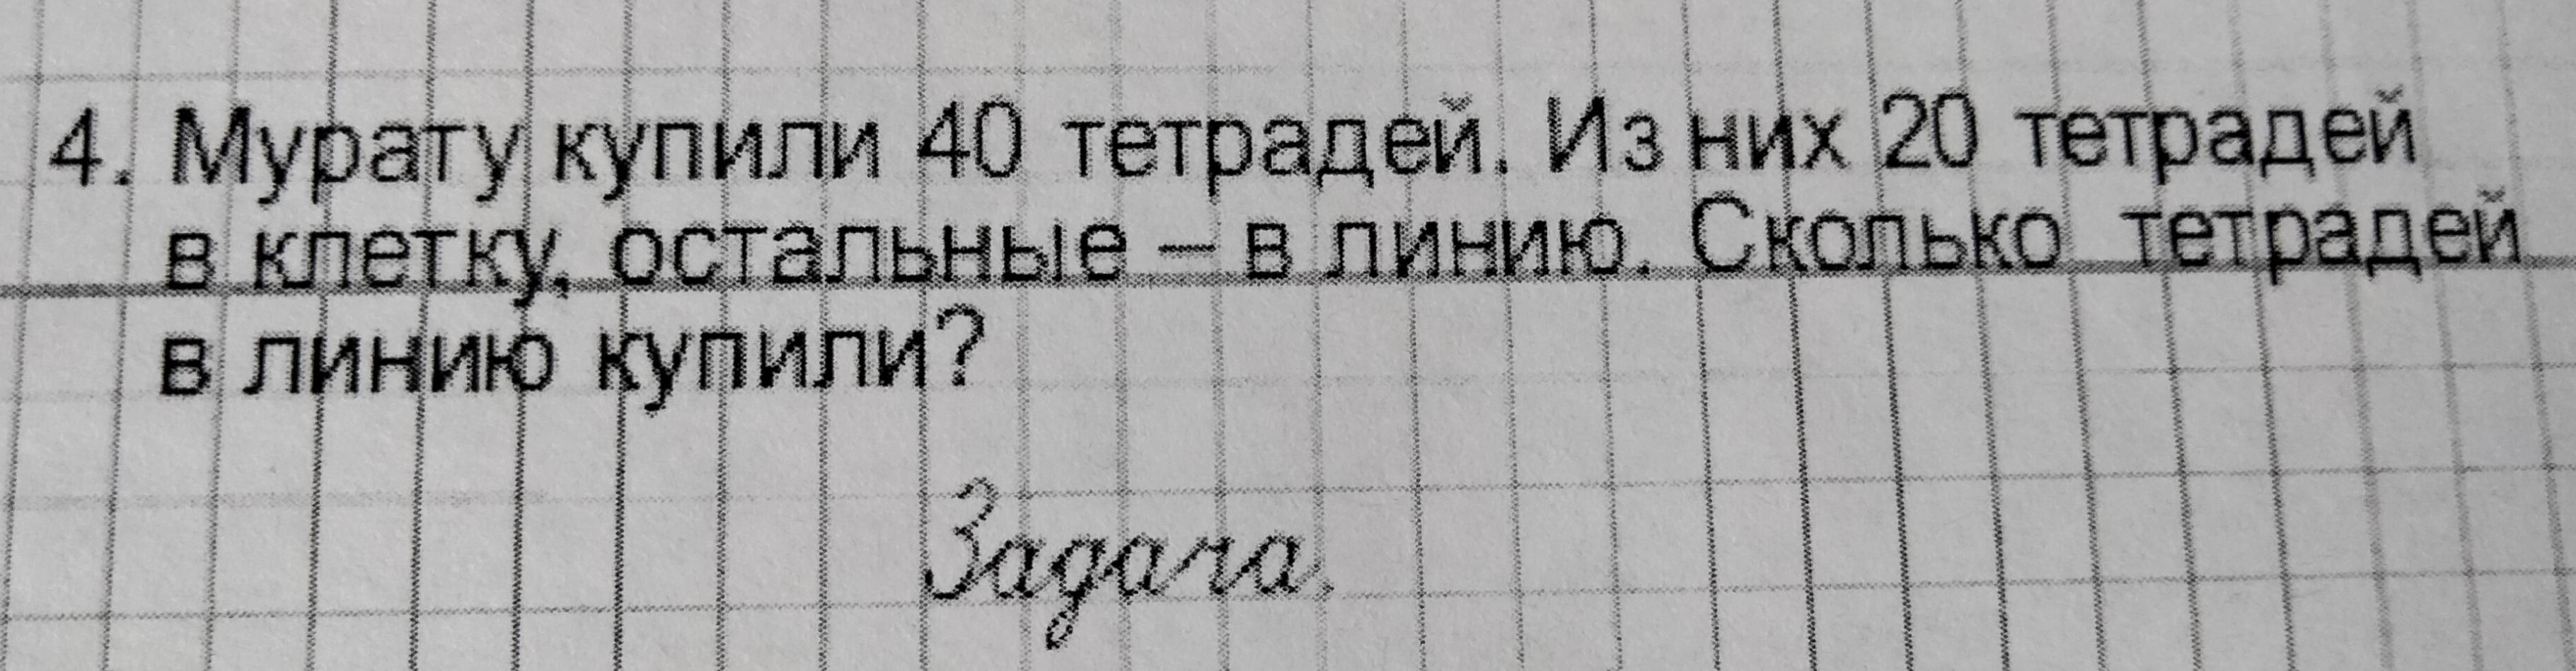 4. Мурату купили 40 тетрадей. Из них 20 тетрадей
в клетку, остальные – в линию. Сколько тетрадей
в линию купили?
Задача.